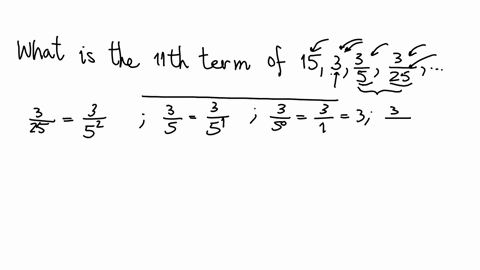 What is the 11th term of 15, 3, 3/5, 3/25, ...
3/25 = 3/5² ; 3/5 = 3/5¹ ; 3/5⁰ = 3/1 = 3; 3/